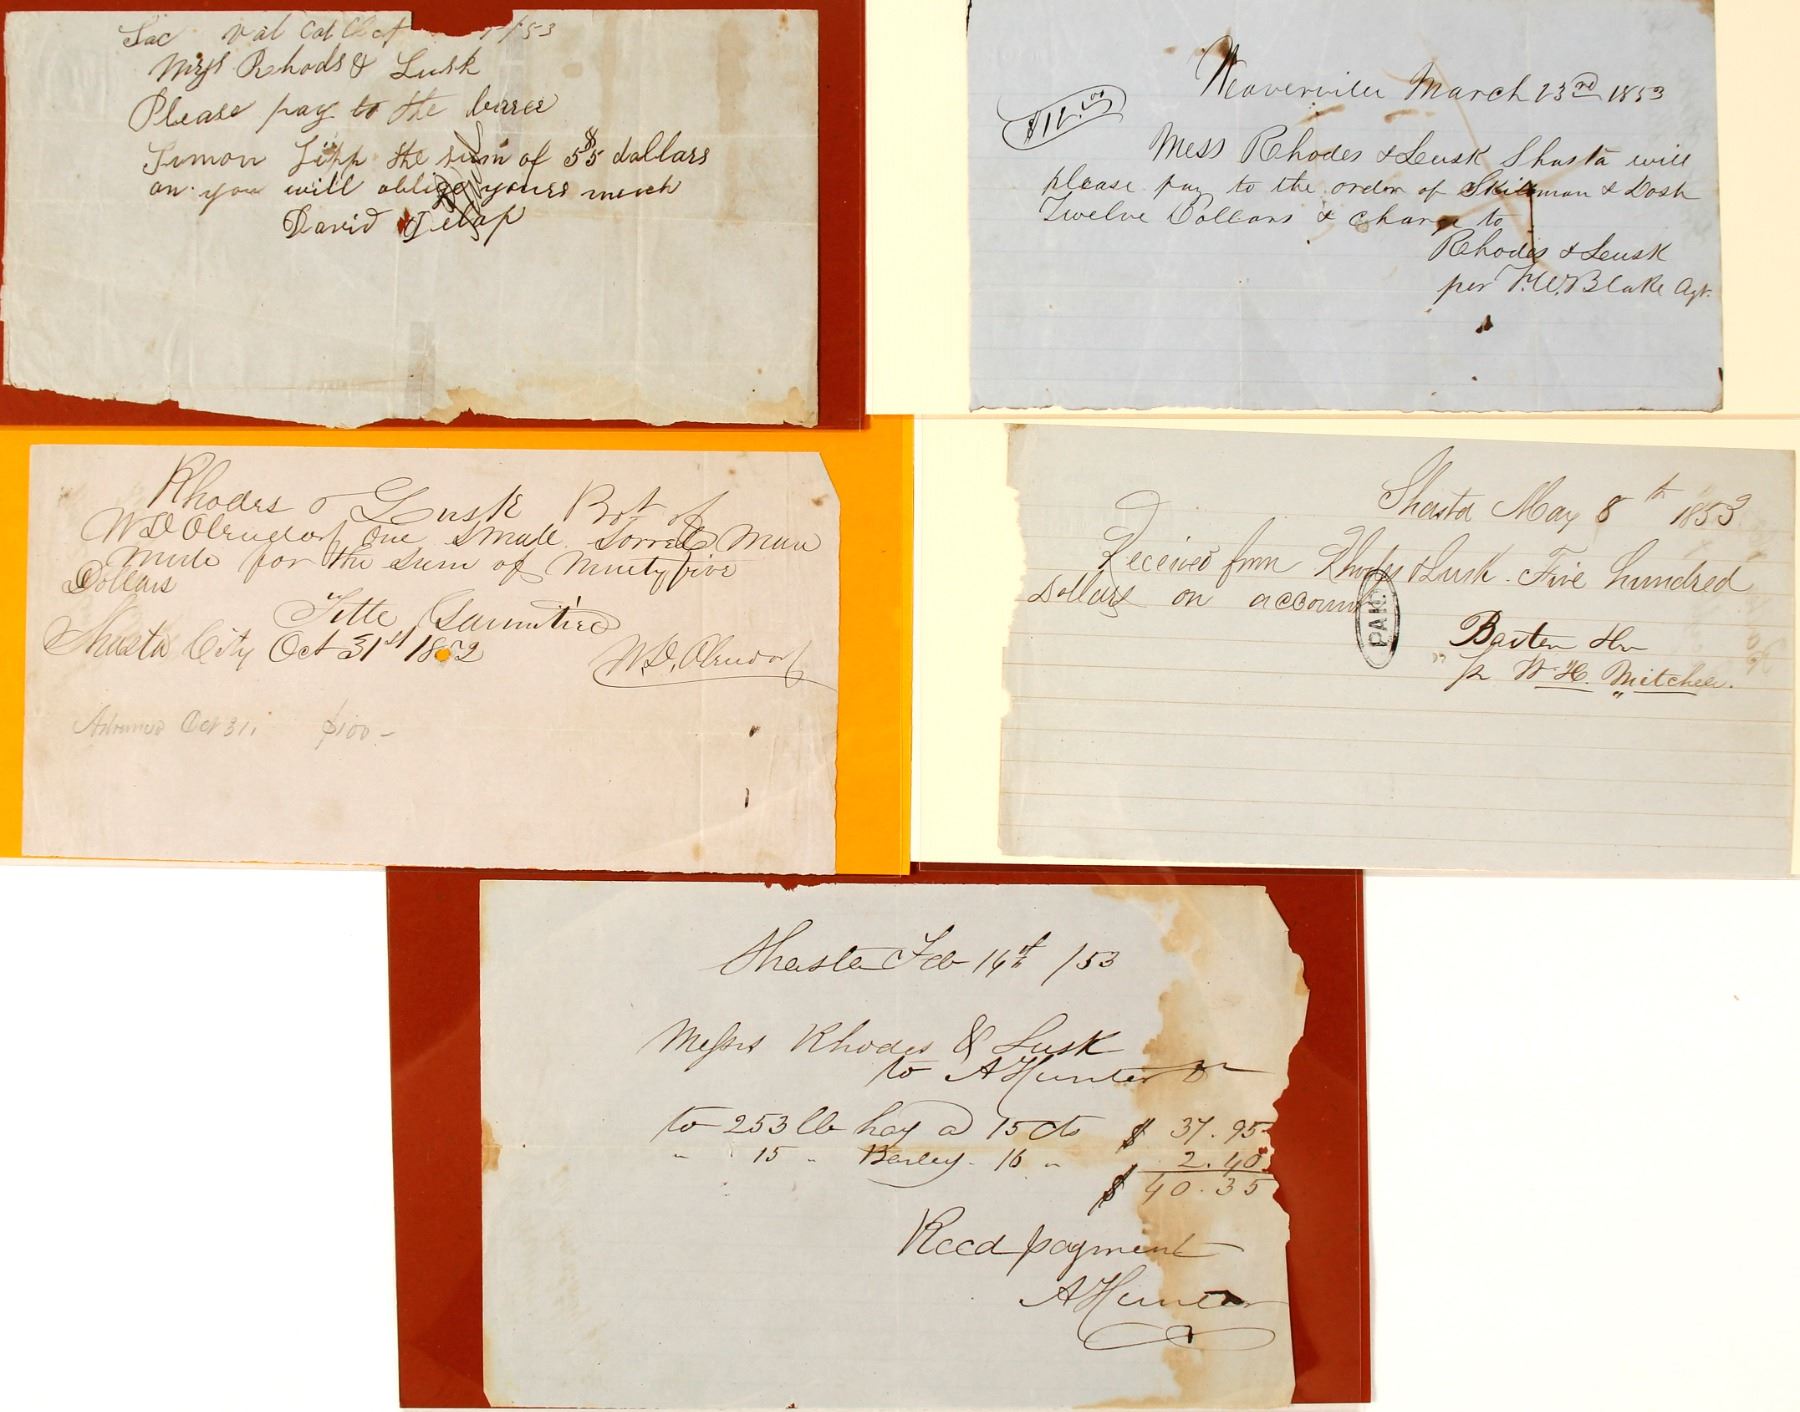 Sac Val Cal Oct /53
Mrss Rhods & Lusk
Please pay to the
Simon Lipp the sum of 5$5 dollars
on you will oblige yours much
David
Weaverville March 23rd 1853
$12.00
Mess Rhodes & Lusk Shasta will
please pay to the order of Skillman & Dosh
Twelve Dollars & charge to
Rhodes & Lusk
per F.W. Blake Agt.
Rhodes & Lusk Bot of
WD Olendorf One Small Sorrel Mare
Mule for the Sum of Ninety five
Dollars
Title
Shasta City Oct 31st 1852
W.D. Olendorf
Oct 31, $100-
Shasta May 8th 1853
Received from Rhodes & Lusk. Five hundred
Dollars on account
PAID
Baxter &
pr W. H. Mitchell.
Shasta Feb 16th /53
Messrs Rhodes & Lusk
to A Hunter Dr
to 253 lb hay a 15 cts $ 37.95
" 15 " Barley - 16 " 2.40
$ 40.35
Recd payment
A Hunter